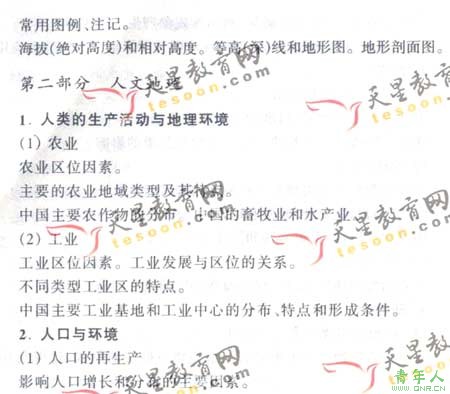 常用图例、注记。
海拔(绝对高度)和相对高度。等高(深)线和地形图。地形剖面图。
第二部分 人文地理
1. 人类的生产活动与地理环境
(1) 农业
农业区位因素。
主要的农业地域类型及其特点。
中国主要农作物的分布,中国的畜牧业和水产业。
(2) 工业
工业区位因素。工业发展与区位的关系。
不同类型工业区的特点。
中国主要工业基地和工业中心的分布、特点和形成条件。
2. 人口与环境
(1) 人口的再生产
影响人口增长和分布的主要因素。
天星教育网
tesoon.com
天星教育网
tesoon.com
天星教育网
tesoon.com
天星教育网
tesoon.com
天星教育网
tesoon.com
青年人
WWW.QNR.CN